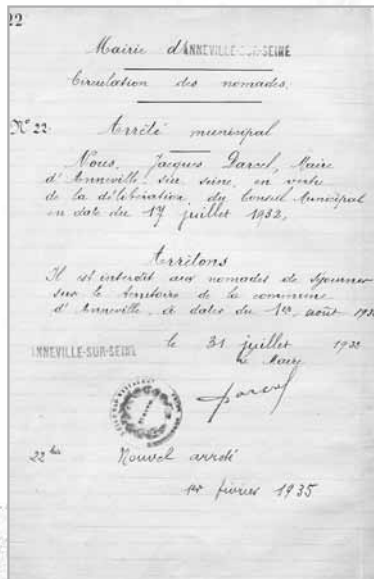 22
Mairie d'ANNEVILLE-SUR-SEINE
Circulation des nomades.
N° 22. Arrêté municipal
Nous, Jacques Darcel, Maire
d'Anneville sur seine, en vertu
de la délibération, du Conseil Municipal
en date du 17 juillet 1932,
Arrêtons
Il est interdit aux nomades de séjourner
sur le territoire de la commune
d'Anneville, à dater du 1er août 193
le 31 juillet 1932
ANNEVILLE-SUR-SEINE
Le Maire
Darcel
22 bis Nouvel arrêté
1er février 1935